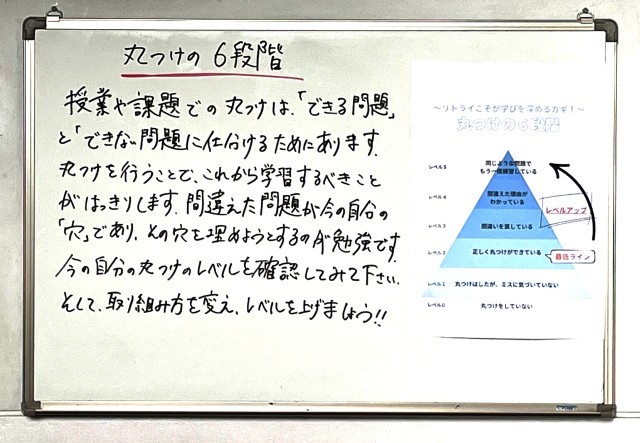 丸つけの6段階
授業や課題での丸つけは、「できる問題」
と「できない問題に仕分けるためにあります.
丸つけを行うことで、これから学習するべきこと
がはっきりします.間違えた問題が今の自分の
「穴」であり、その穴を埋めようとするのが勉強です.
今の自分の丸つけのレベルを確認してみて下さい.
そして、取り組み方を変え、レベルを上げましょう!!
〜リトライこそが学びを深めるカギ！〜
丸つけの6段階
レベル5
同じような問題で
もう一度練習している
レベル4
間違えた理由が
わかっている
レベルアップ
レベル3
間違いを直している
レベル2
正しく丸つけができている
最低ライン
レベル1
丸つけはしたが、ミスに気づいていない
レベル0
丸つけをしていない